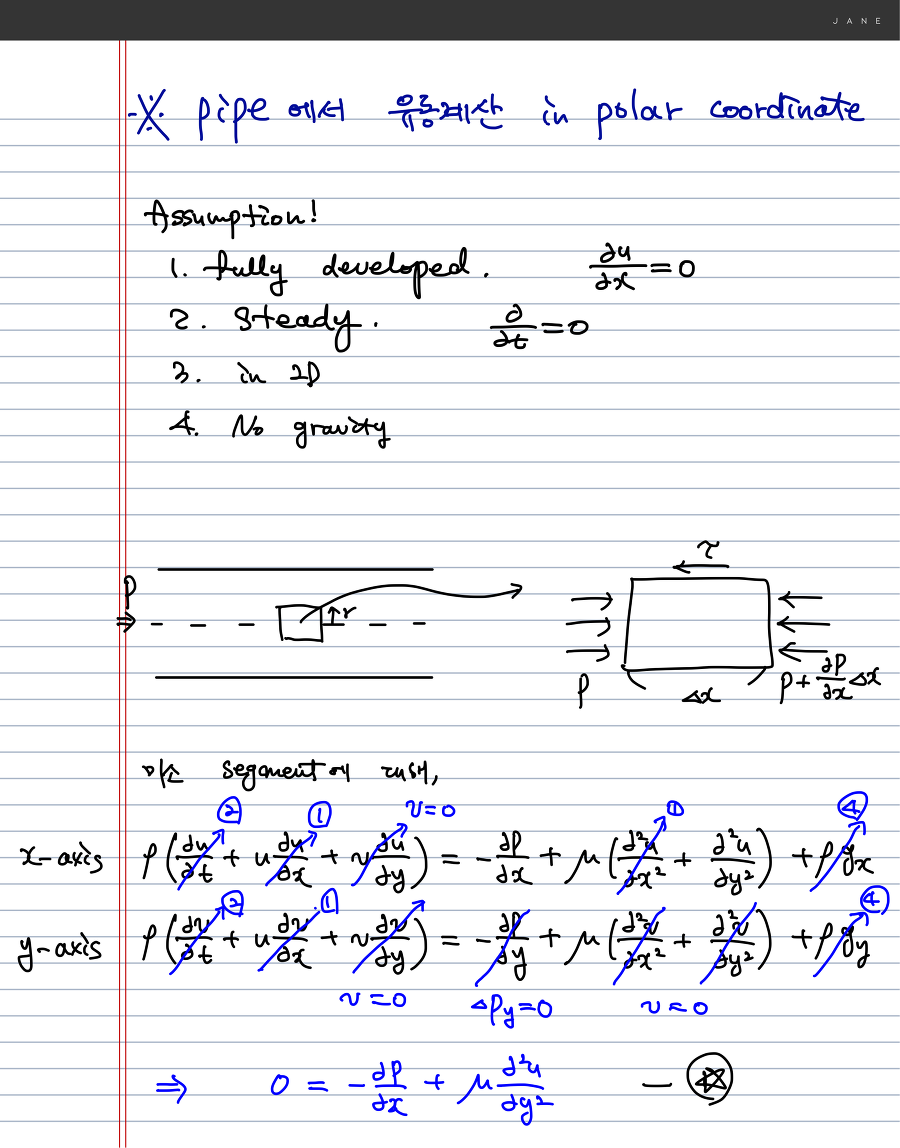 JANE
※ pipe에서 유동계산 in polar coordinate
Assumption!
1. fully developed. ∂u/∂x = 0
2. Steady. ∂/∂t = 0
3. in 2D
4. No gravity
τ
P
r
P Δx P + ∂P/∂x Δx
미소 segment에 대해,
② ① v=0 ① ④
x-axis ρ(∂u/∂t + u ∂u/∂x + v ∂u/∂y) = -∂P/∂x + μ(∂²u/∂x² + ∂²u/∂y²) + ρgx
② ① ④
y-axis ρ(∂v/∂t + u ∂v/∂x + v ∂v/∂y) = -∂P/∂y + μ(∂²v/∂x² + ∂²v/∂y²) + ρgy
v=0 ΔPy=0 v=0
⇒ 0 = -∂P/∂x + μ ∂²u/∂y² — ☆